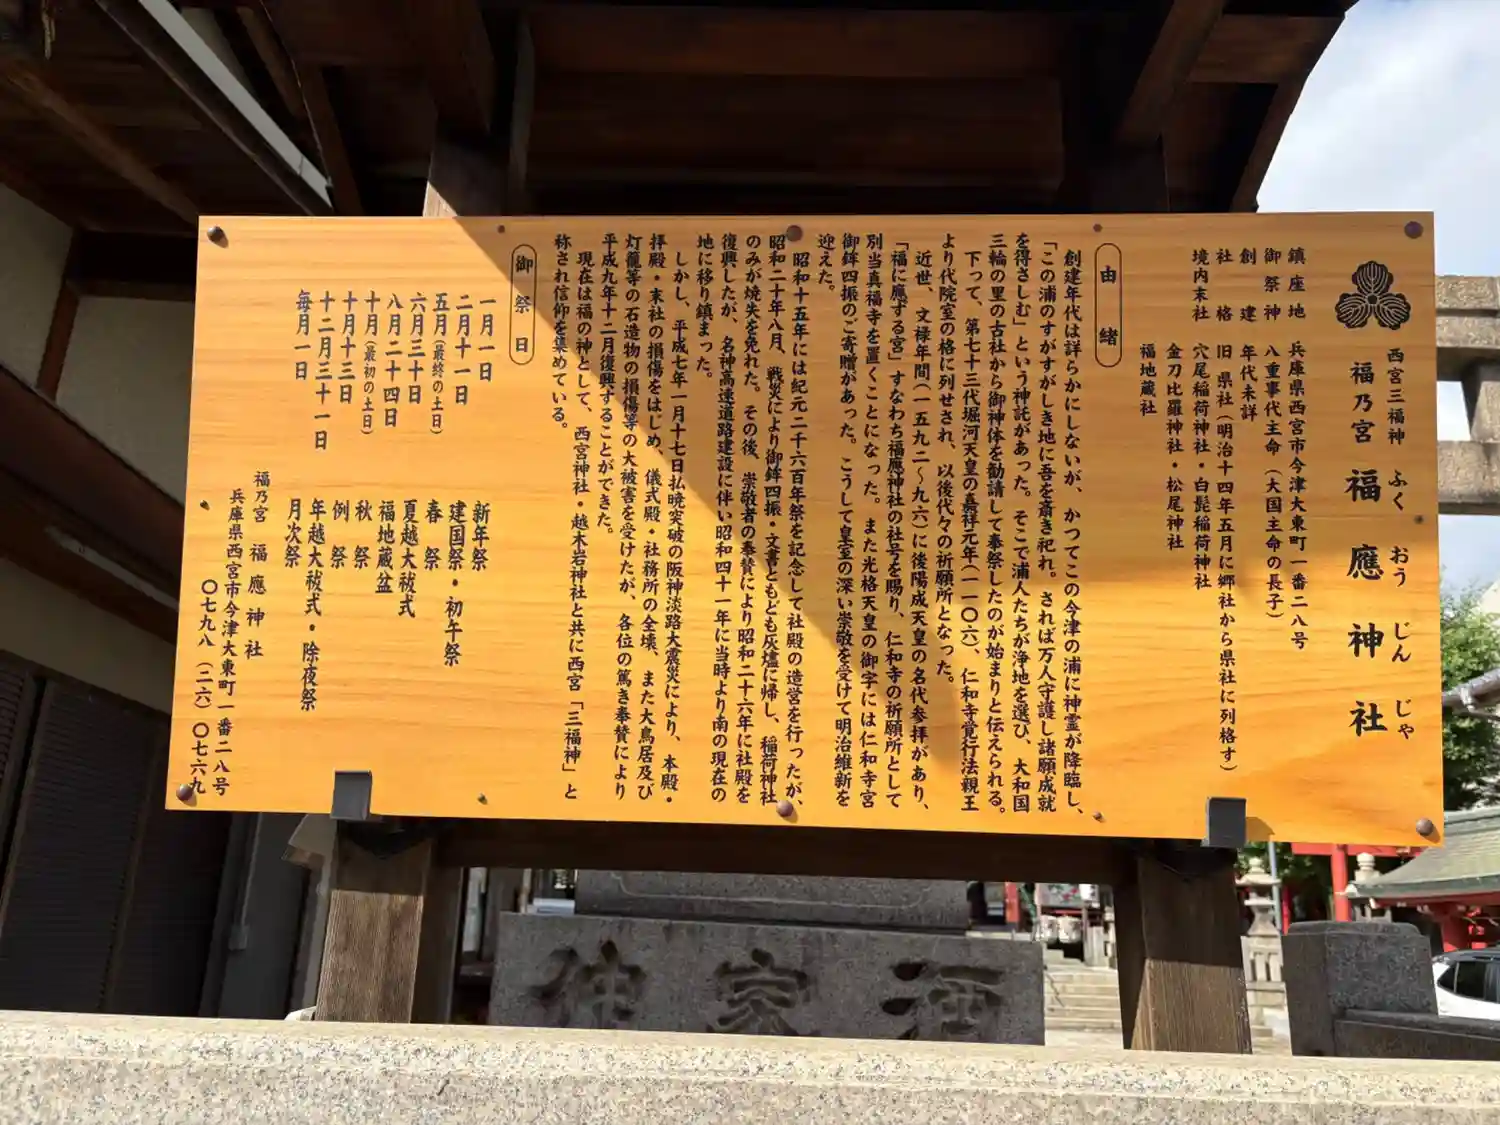 西宮三福神 ふく おう じん じゃ
福乃宮 福應神社
鎮座地 兵庫県西宮市今津大東町一番二八号
御祭神 八重事代主命（大国主命の長子）
創建 年代未詳
社格 旧県社（明治十四年五月に郷社から県社に列格す）
境内末社 穴尾稲荷神社・白髭稲荷神社
金刀比羅神社・松尾神社
福地蔵社
由緒
創建年代は詳らかにしないが、かつてこの今津の浦に神霊が降臨し、
「この浦のすがすがしき地に吾を斎き祀れ。されば万人守護し諸願成就
を得さしむ」という神託があった。そこで浦人たちが浄地を選び、大和国
三輪の里の古社から御神体を勧請して奉祭したのが始まりと伝えられる。
下って、第七十三代堀河天皇の嘉祥元年（一一〇六）、仁和寺覚行法親王
より代院室の格に列せされ、以後代々の祈願所となった。
近世、文禄年間（一五九二～九六）に後陽成天皇の名代参拝があり、
「福に應ずる宮」すなわち福應神社の社号を賜り、仁和寺の祈願所として
別当真福寺を置くことになった。また光格天皇の御字には仁和寺宮
御鉾四振のご寄贈があった。こうして皇室の深い崇敬を受けて明治維新を
迎えた。
昭和十五年には紀元二千六百年祭を記念して社殿の造営を行ったが、
昭和二十年八月、戦災により御鉾四振・文書ともども灰燼に帰し、稲荷神社
のみが焼失を免れた。その後、崇敬者の奉賛により昭和二十六年に社殿を
復興したが、名神高速道路建設に伴い昭和四十一年に当時より南の現在の
地に移り鎮まった。
しかし、平成七年一月十七日払暁突破の阪神淡路大震災により、本殿・
拝殿・末社の損傷をはじめ、儀式殿・社務所の全壊、また大鳥居及び
灯籠等の石造物の損傷等の大被害を受けたが、各位の篤き奉賛により
平成九年十二月復興することができた。
現在は福の神として、西宮神社・越木岩神社と共に西宮「三福神」と
称され信仰を集めている。
御祭日
一月一日 新年祭
二月十一日 建国祭・初午祭
五月（最終の土日） 春祭
六月三十日 夏越大祓式
八月二十四日 福地蔵盆
十月（最初の土日） 秋祭
十月十三日 例祭
十二月三十一日 年越大祓式・除夜祭
毎月一日 月次祭
福乃宮 福應神社
兵庫県西宮市今津大東町一番二八号
〇七九八（二六）〇七六九
酒家仲